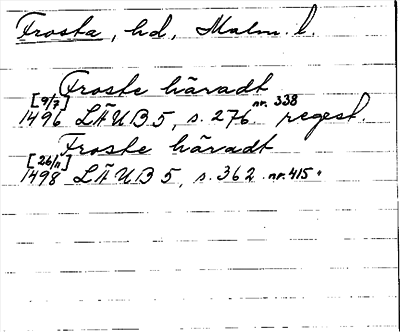 Frosta, hd, Malm. l.
Froste häradt
[9/7] nr. 338
1496 LÄUB 5, s. 276 regest.
Froste häradt
[26/11]
1498 LÄUB 5, s. 362 nr. 415.